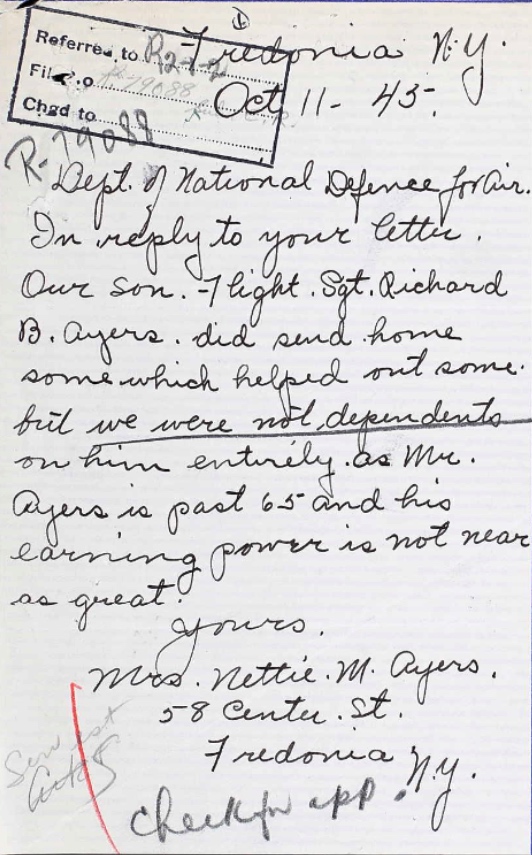 Fredonia N.Y.
Referred to R2-1-2
File No R79088
Chgd to
Oct 11 - 45.
R-79088
Dept. of National Defence for Air.
In reply to your letter.
Our son. Flight. Sgt. Richard
B. Ayers. did send home
some which helped out some.
but we were not dependents
on him entirely. as Mr.
Ayers is past 65 and his
earning power is not near
as great.
Yours.
Mrs. Nettie. M. Ayers.
58 Center. St.
Fredonia N.Y.
check for app.